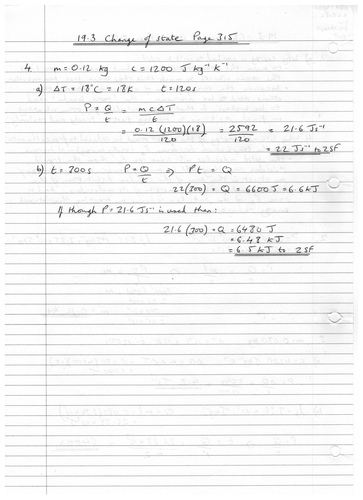 19.3 Change of state Page 315
4. m = 0.12 kg c = 1200 J kg⁻¹ K⁻¹
a) ΔT = 18°C = 18K t = 120s
P = Q/t = mcΔT/t
= 0.12 (1200)(18)/120 = 2592/120 = 21.6 Js⁻¹
= 22 Js⁻¹ to 2SF
b) t = 300s P = Q/t ⇒ Pt = Q
22(300) = Q = 6600 J = 6.6 kJ
If though P = 21.6 Js⁻¹ is used then:
21.6 (300) = Q = 6480 J
= 6.48 kJ
= 6.5 kJ to 2SF